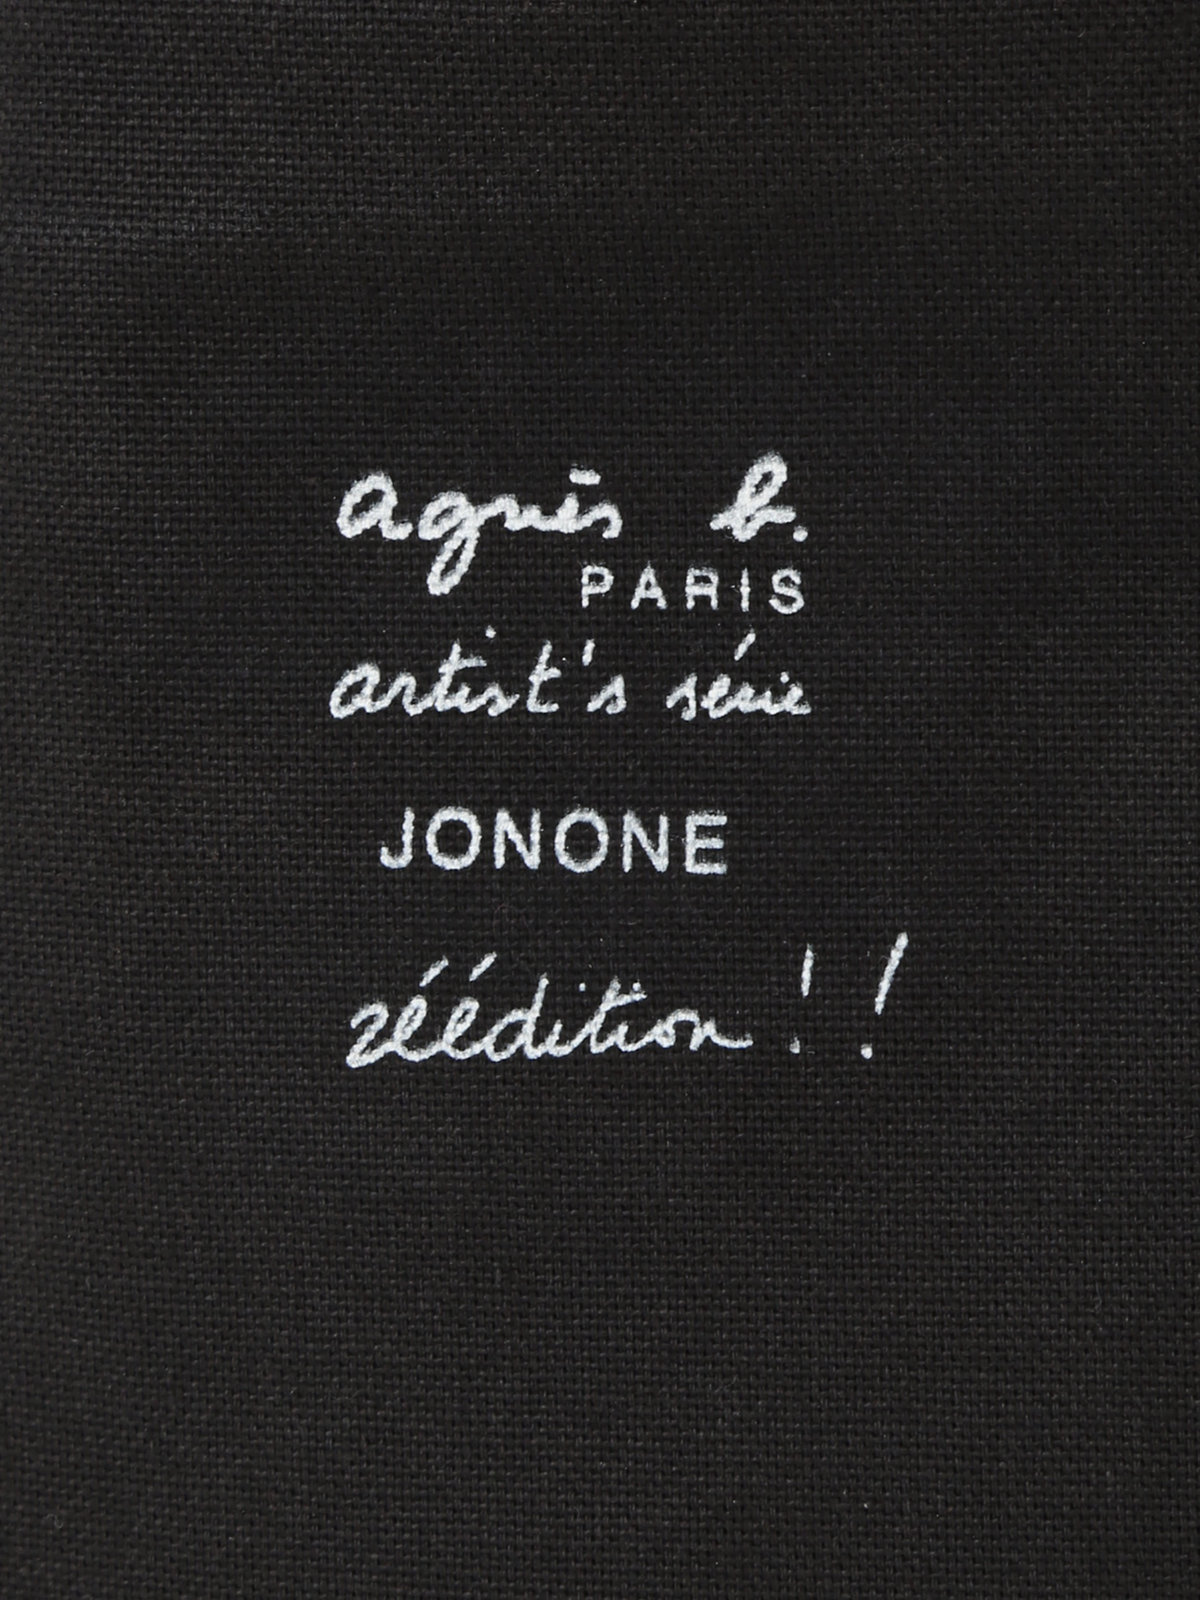 agnès b.
PARIS
artist's série
JONONE
réédition ! !